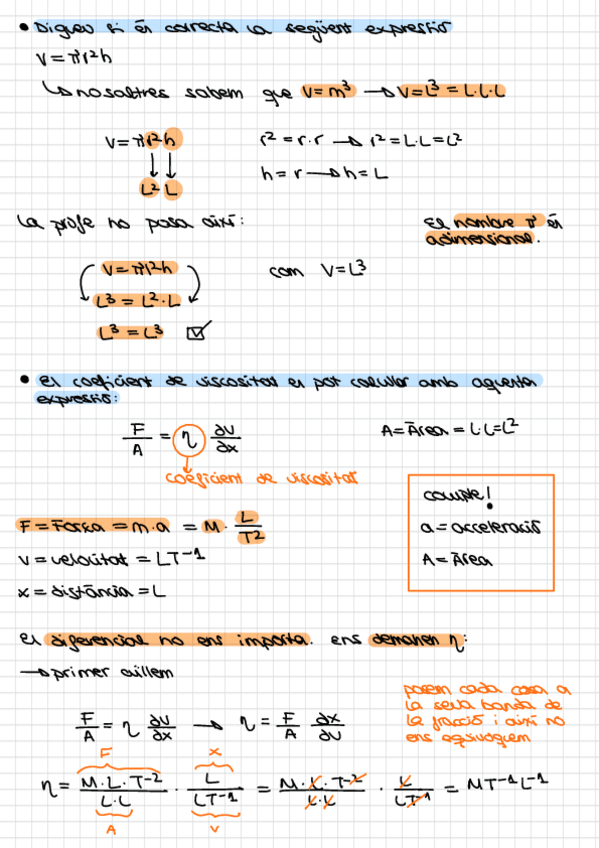 • Digueu si és correcta la següent expressió
V = πr²h
↳ nosaltres sabem que V = m³ → V = L³ = L·L·L
V = πr²h r² = r·r → r² = L·L = L²
↓ ↓ h = r → h = L
L² L
La profe ho posa així: El nombre π és
adimensional.
V = πr²h com V = L³
L³ = L²·L
L³ = L³ ☑
• El coeficient de viscositat es pot calcular amb aquesta
expressió:
F/A = η ∂v/∂x A = Àrea = L·L = L²
coeficient de viscositat
compte!
a = acceleració
A = Àrea
F = Força = m·a = M · L/T²
v = velocitat = LT⁻¹
x = distància = L
El diferencial no ens importa. ens demanen η:
→ primer aïllem
posem cada cosa a
la seva banda de
la fracció i així no
ens equivoquem
F/A = η ∂v/∂x → η = F/A ∂x/∂v
F x
η = M·L·T⁻²/L·L · L/LT⁻¹ = M·L·T⁻²/L·L · L/LT⁻¹ = MT⁻¹L⁻¹
A v